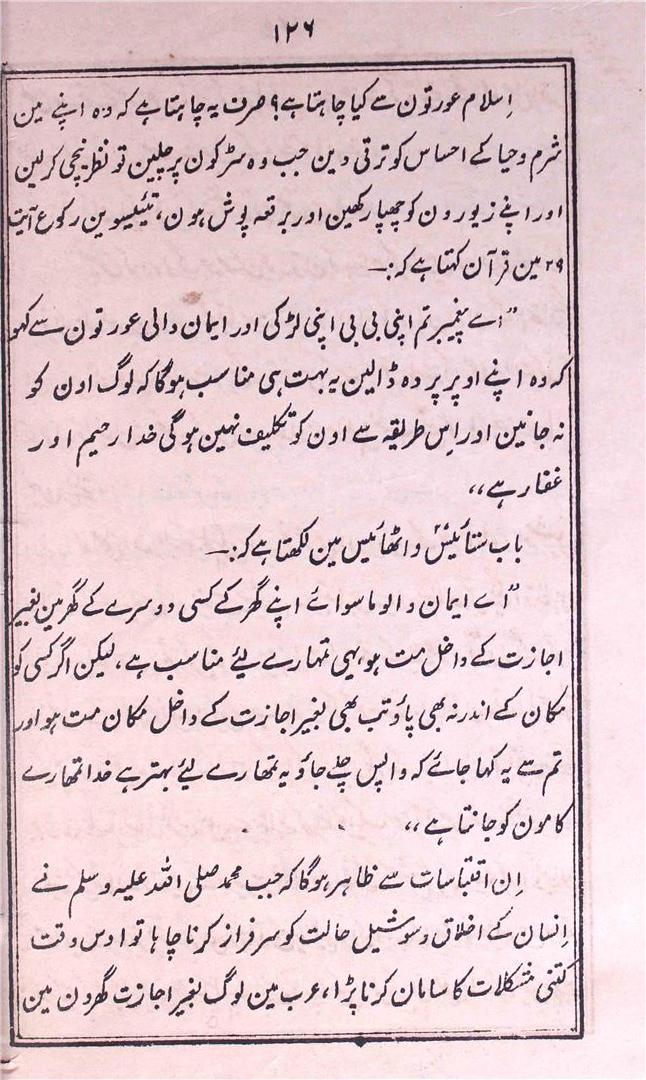 ۱۲۶
اِسلام عورتون سے کیا چاہتا ہے؟ صرف یہ چاہتا ہے کہ وہ اپنے مین
شرم وحیا کے احساس کو ترقی دین جب وہ سڑکون پر چلین تو نظر نیچی کرلین
اور اپنے زیورون کو چھپا رکھین اور برقعہ پوش ہون، تیئیسوین رکوع آیت
۲۹ مین قرآن کہتا ہے کہ:—
”اے پیغمبر تم اپنی بی بی اپنی لڑکی اور ایمان والی عورتون سے کہو
کہ وہ اپنے اوپر پردہ ڈالین یہ بہت ہی مناسب ہوگا کہ لوگ اون کو
نہ جانین اور اِس طریقہ سے اون کو تکلیف نہین ہوگی خدا رحیم اور
غفار ہے،،
باب ستائیس و اٹھائیس مین لکھتا ہے کہ:—
”اے ایمان والو ماسوائے اپنے گھر کے کسی دوسرے کے گھر مین بغیر
اجازت کے داخل مت ہو، یہی تمہارے لیئے مناسب ہے، لیکن اگر کسی کو
مکان کے اندر نہ بھی پاؤ تب بھی بغیر اجازت کے داخل مکان مت ہو اور
تم سے یہ کہا جائے کہ واپس چلے جاؤ یہ تمھارے لیئے بہتر ہے خدا تمھارے
کامون کو جانتا ہے،،
اِن اقتباسات سے ظاہر ہوگا کہ جب محمد صلی اللہ علیہ وسلم نے
اِنسان کے اخلاق و سوشیل حالت کو سرفراز کرنا چاہا تو اوس وقت
کتنی مشکلات کا سامان کرنا پڑا، عرب مین لوگ بغیر اجازت گھرون مین